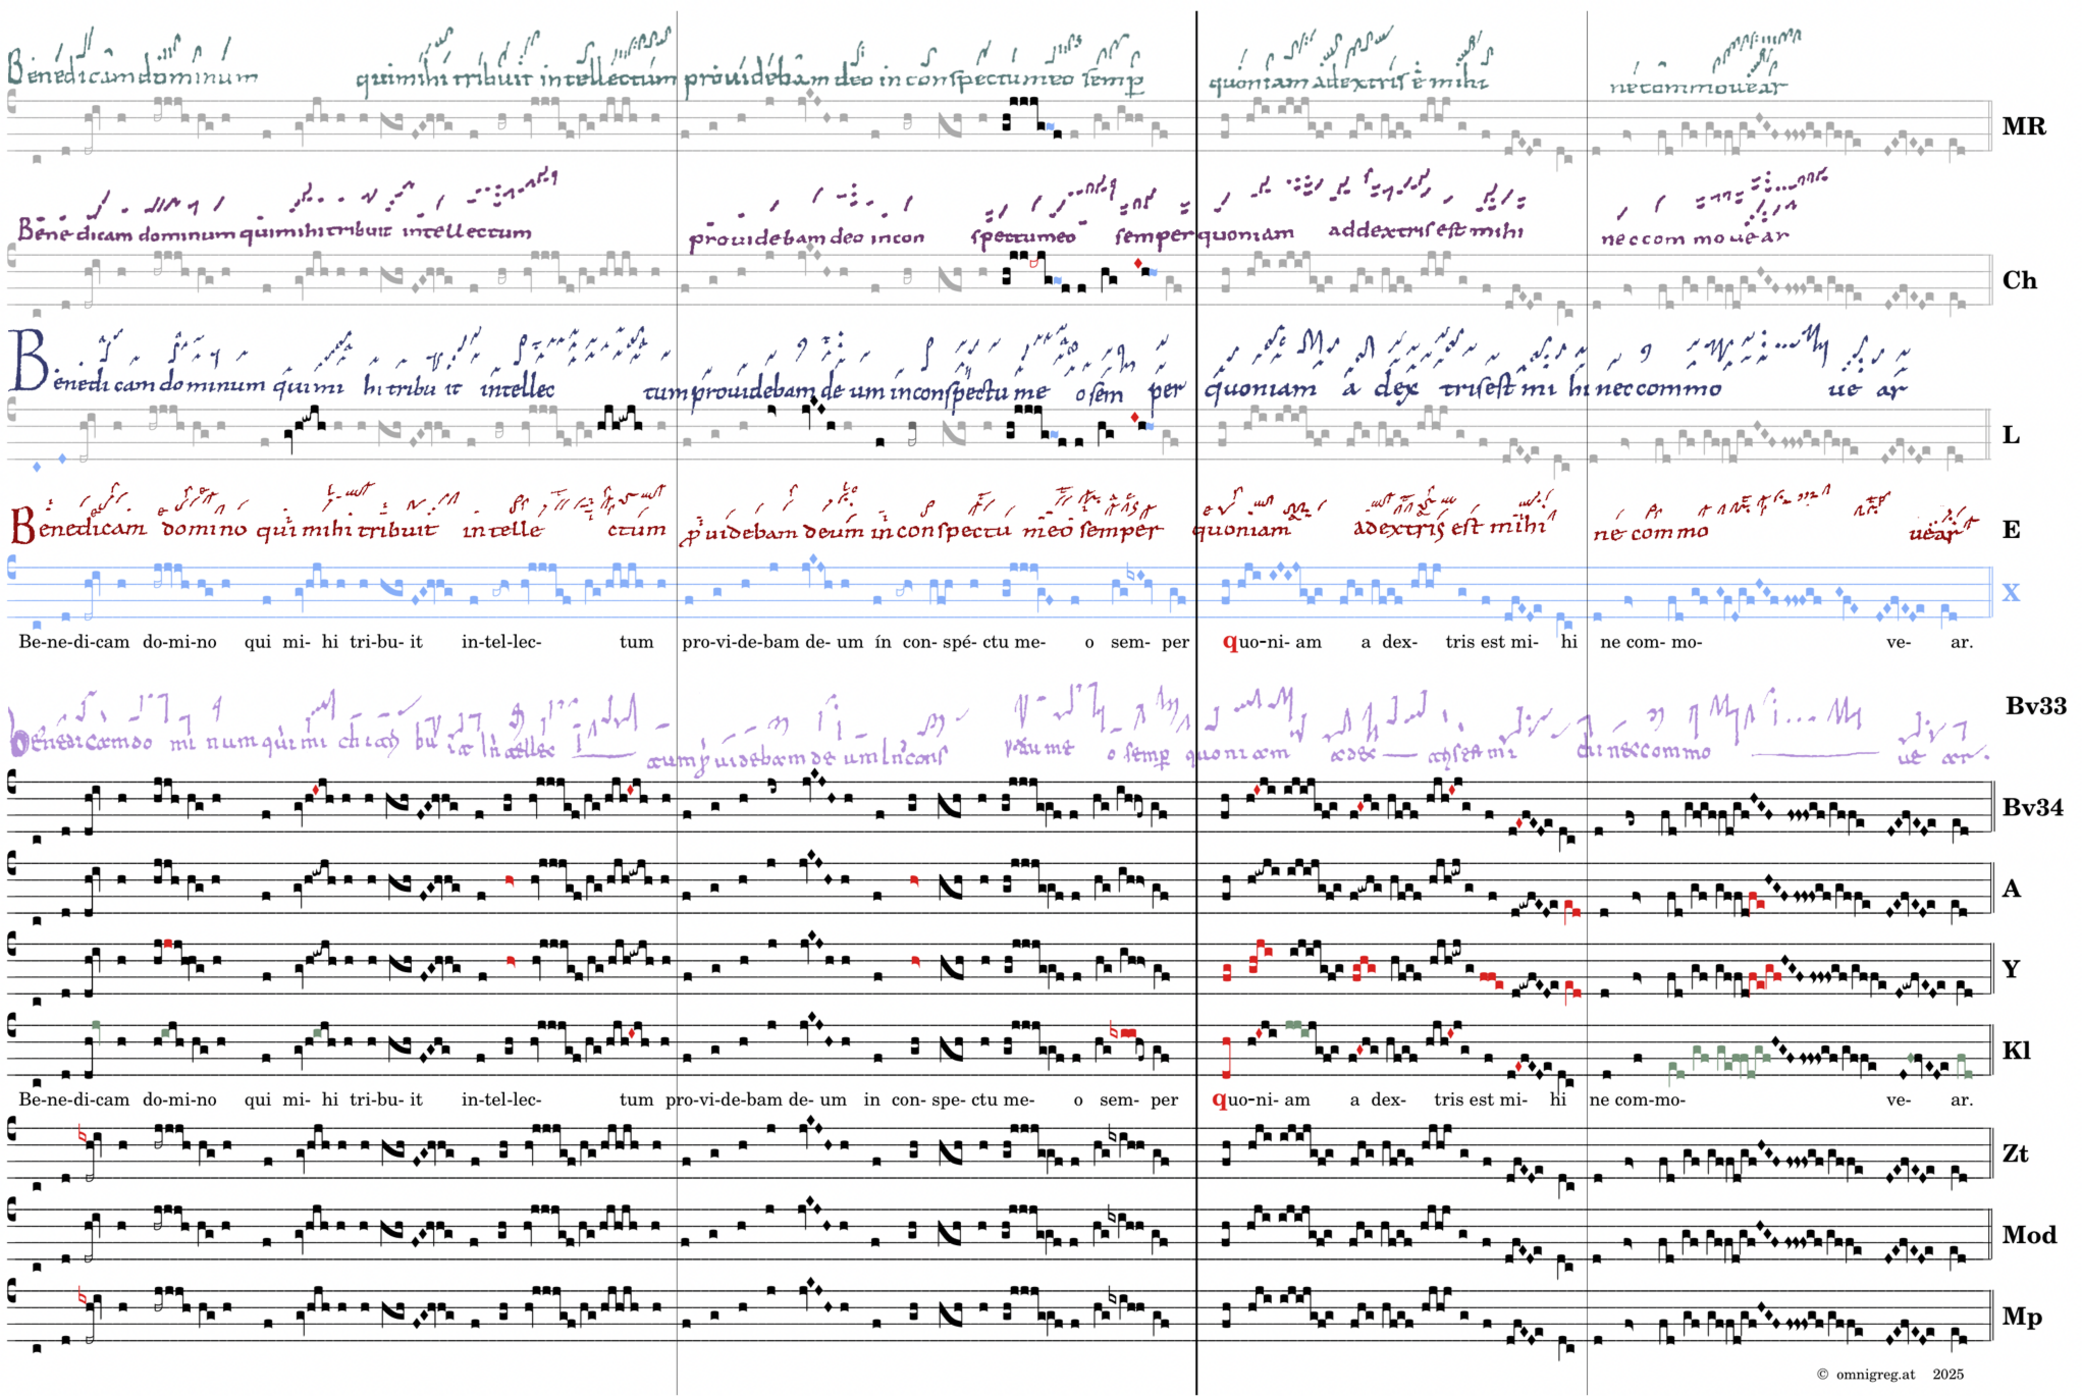 Benedicam dominum qui mihi tribuit intellectum providebam deo in conspectu meo semp quoniam a dextris ē mihi ne commovear
MR
Benedicam dominum qui mihi tribuit intellectum providebam deo in conspectu meo semper quoniam ad dextris est mihi nec commovear
Ch
Benedicam dominum qui mihi tribuit intellectum providebam deum in conspectu meo semper quoniam a dextris est mihi nec commovear
L
Benedicam domino qui mihi tribuit intellectum p̄videbam deum in conspectu meo semper quoniam a dextris est mihi ne commovear
E
X
Be-ne-di-cam do-mi-no qui mi- hi tri-bu- it in-tel-lec- tum pro-vi-de-bam de- um ín con- spé- ctu me- o sem- per quo-ni- am a dex- tris est mi- hi ne com- mo- ve- ar.
Bv33
Bv34
A
Y
Kl
Be-ne-di-cam do-mi-no qui mi- hi tri-bu- it in-tel-lec- tum pro-vi-de-bam de- um in con- spe- ctu me- o sem- per quo-ni- am a dex- tris est mi- hi ne com-mo- ve- ar.
Zt
Mod
Mp
© omnigreg.at 2025